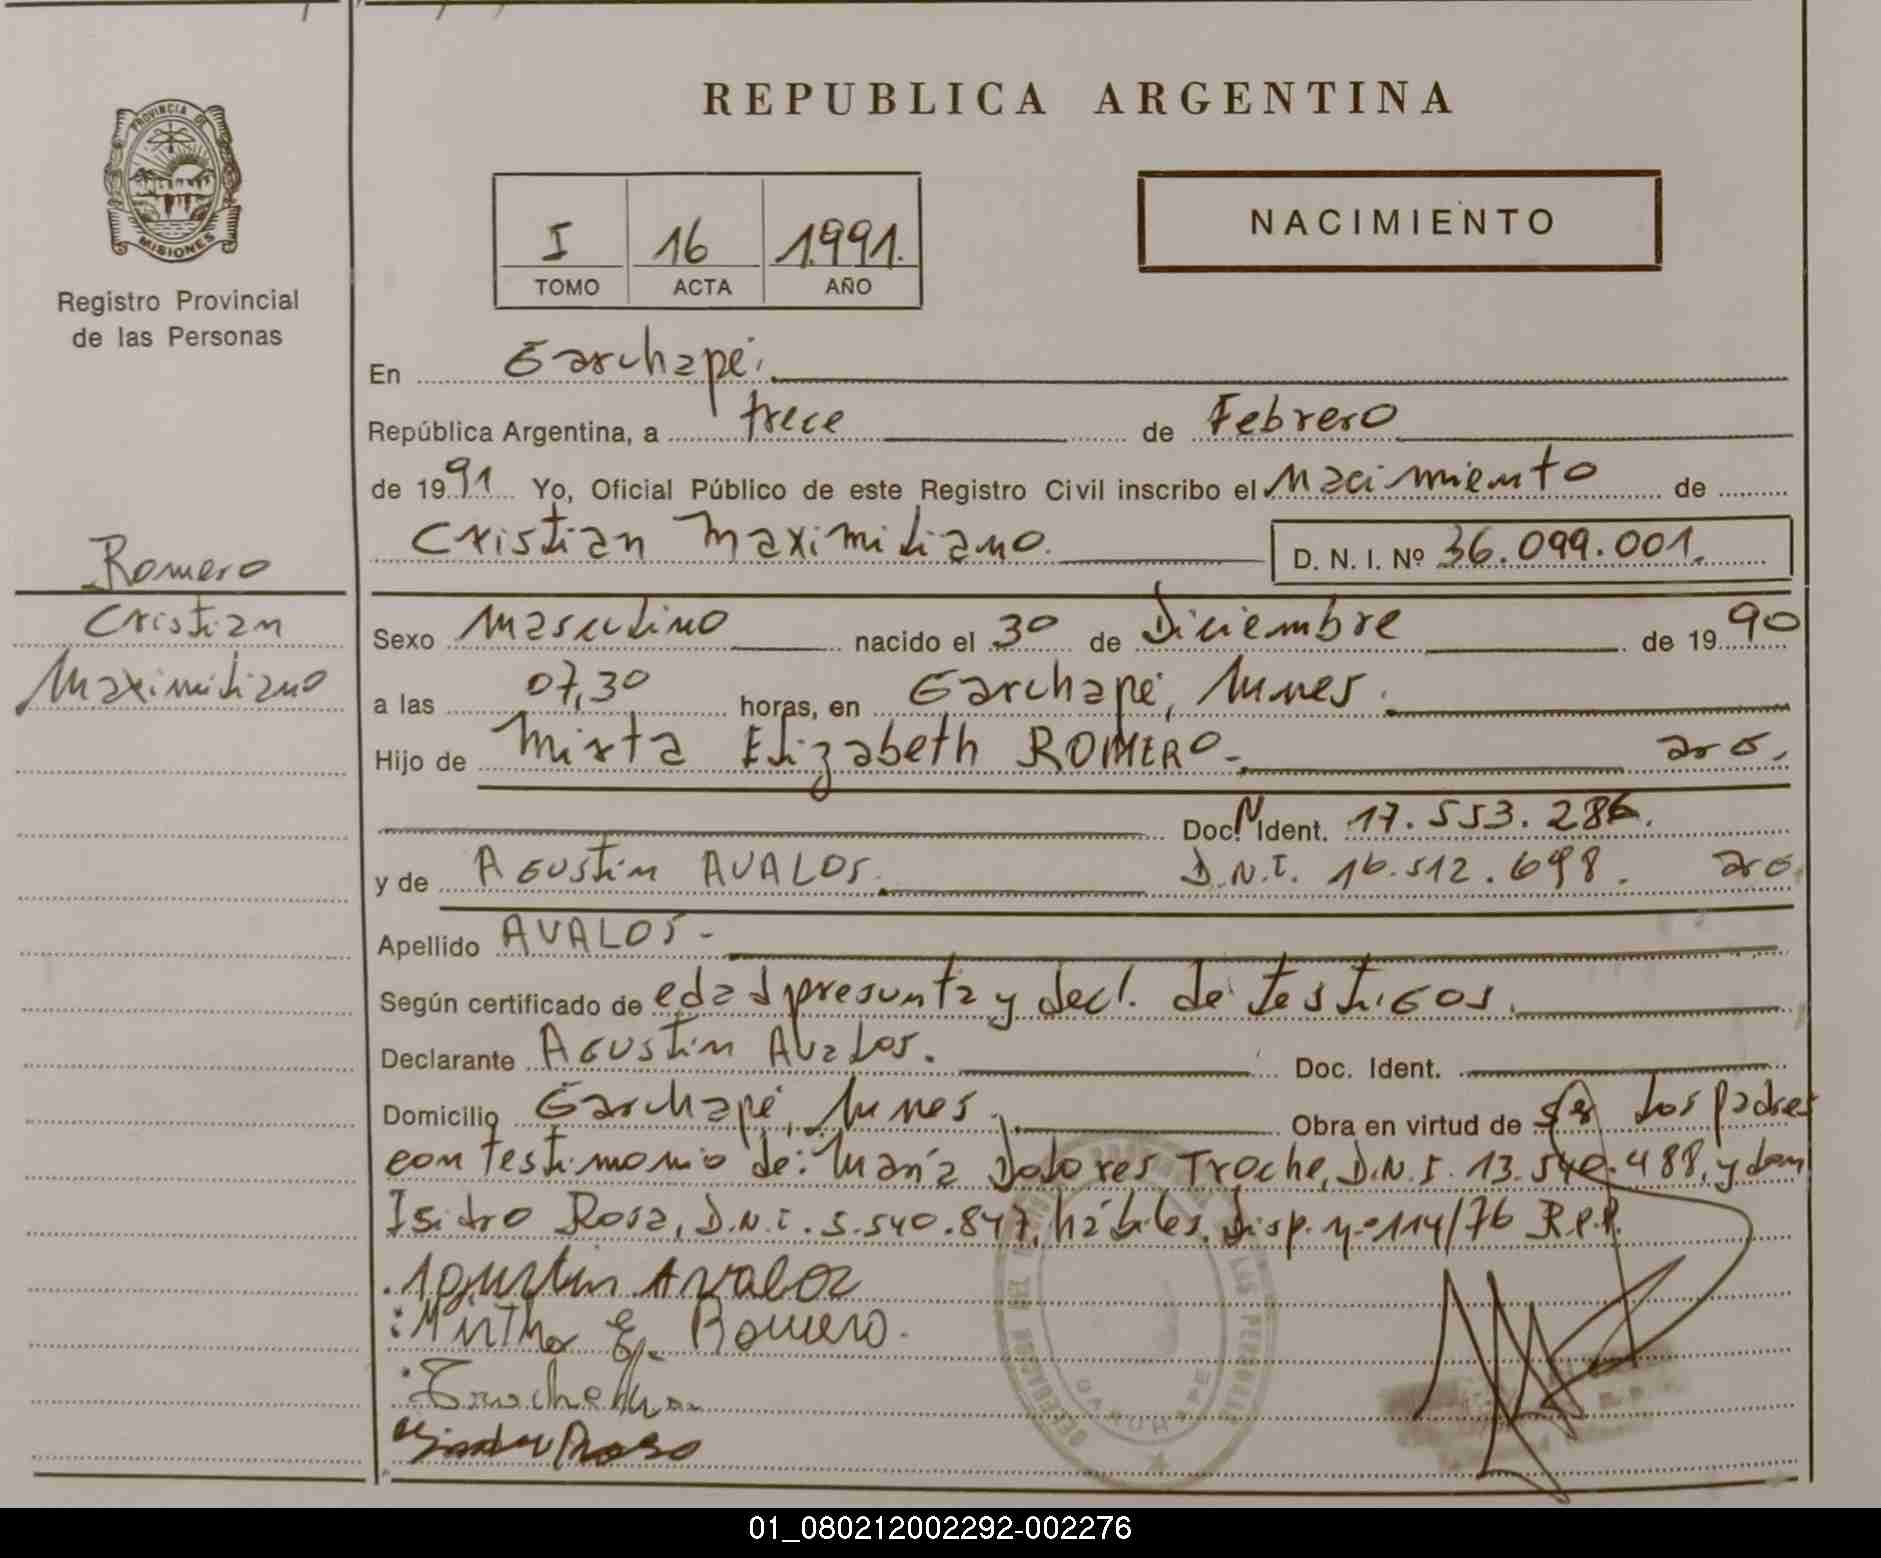 REPUBLICA ARGENTINA
PROVINCIA DE
MISIONES
Registro Provincial
de las Personas
I 16 1.991.
TOMO ACTA AÑO
NACIMIENTO
En Garuhapé.
República Argentina, a trece de Febrero
de 1991 Yo, Oficial Público de este Registro Civil inscribo el Nacimiento de
Cristian Maximiliano. D. N. I. Nº 36.099.001.
Romero
Cristian
Maximiliano
Sexo Masculino nacido el 30 de Diciembre de 1990
a las 07,30 horas, en Garuhapé, Mnes.
Hijo de Mirta Elizabeth ROMERO- aro.
Doc. N Ident. 17.553.286.
y de AGustin AVALOS. D.N.I. 16.512.698. aro.
Apellido AVALOS-
Según certificado de edad presunta y decl. de testiGos.
Declarante AGustin Avalos. Doc. Ident.
Domicilio Garuhapé, Mnes. Obra en virtud de ser los padres
con testimonio de: María Dolores Troche, D.N.I. 13.540.488, y don
Isidro Rosa, D.N.I. 5.540.847, hábiles. Disp. nº 114/76 R.P.P.
Agustin Avaloz
Mirtha E. Romero.
GARUHAPE
01_080212002292-002276